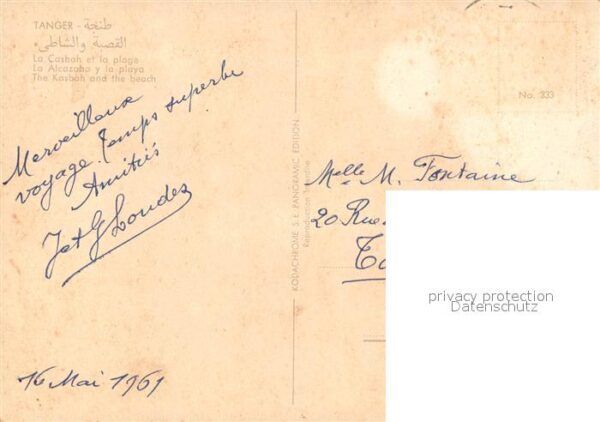 TANGER - طنجة
القصبة والشاطئ
La Casbah et la plage
La Alcazaba y la playa
The Kasbah and the beach
Merveilleux
voyage. Temps superbe
Amitiés
J et G Loudes
16 Mai 1961
KODACHROME S.E. PANORAMIC EDITION
Reproduction Interdite
No. 333
Melle M. Fontaine
20 Rue
privacy protection
Datenschutz